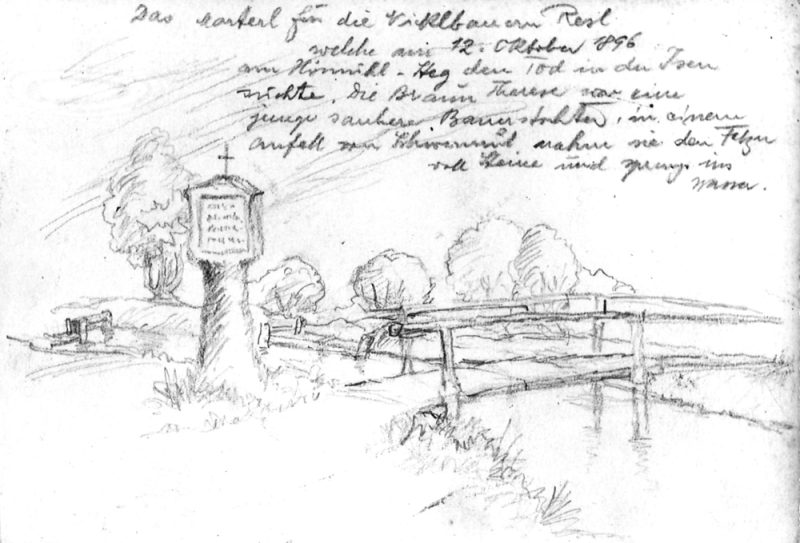 Das Marterl für die Nicklbauern Resl
welche am 12. Oktober 1896
am Steg den Tod in der Isen
suchte. Die Braun Therese war eine
junge saubere Bauerstochter, in einem
Anfall von Schwermut nahm sie den
voll Steine und sprang ins
Wasser.